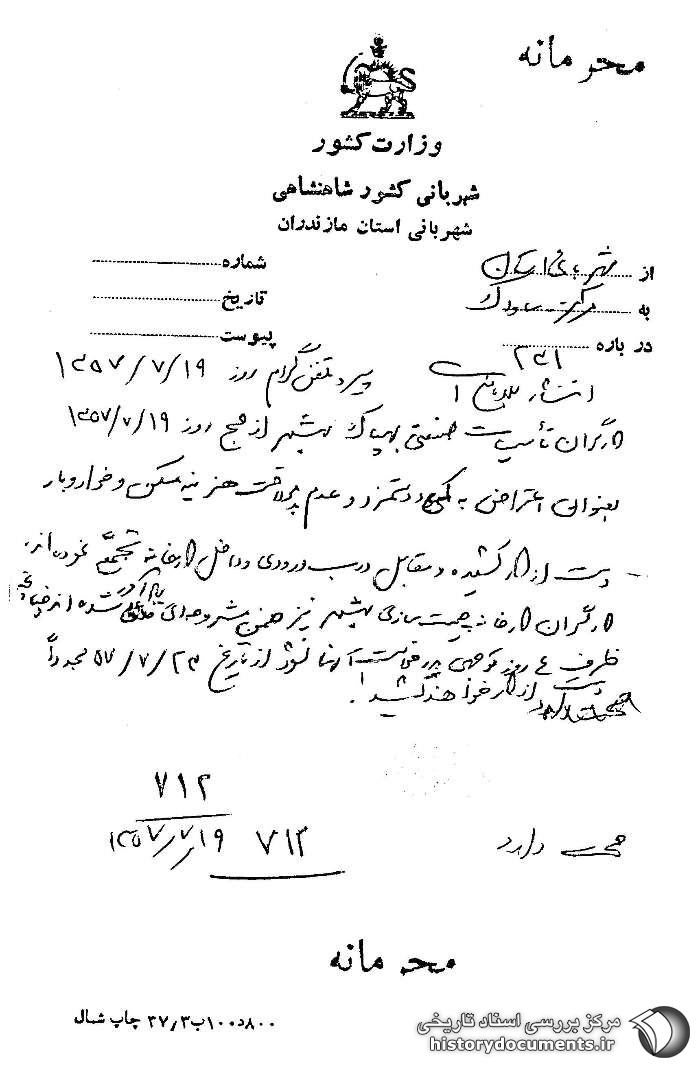 محرمانه
وزارت کشور
شهربانی کشور شاهنشاهی
شهربانی استان مازندران
از شهربانی استان شماره
به ساواک تاریخ
در باره ۳۴۱ پیوست
انتشار پیرو تلفنگرام روز ۱۳۵۷/۷/۱۹
کارگران تأسیسات صنعتی بهپاک بهشهر از صبح روز ۱۳۵۷/۷/۱۹
بعنوان اعتراض به کمی دستمزد و عدم پرداخت هزینه مسکن و خواروبار
دست از کار کشیده و مقابل درب ورودی و داخل کارخانه تجمع نموده‌اند،
کارگران کارخانه چیت سازی بهشهر نیز ضمن شده‌اند چنانچه
ظرف ۴ روز توجهی بدرخواست آنها نشود از تاریخ ۵۷/۷/۲۳ مجدداً
دست از کار خواهند کشید.
۷۱۲
۱۳۵۷/۷/۱۹ ۷۱۳
صحت دارد
محرمانه
۸۰۰د۱۰۰ب۳ر۳۷ چاپ شمال
مرکز بررسی اسناد تاریخی
historydocuments.ir